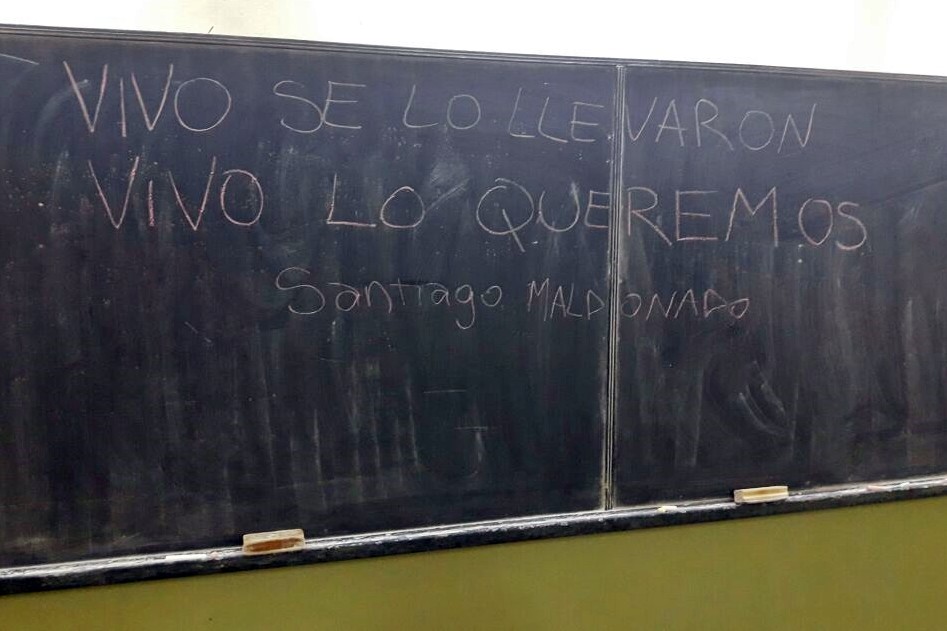 VIVO SE LO LLEVARON
VIVO LO QUEREMOS
Santiago MALDONADO